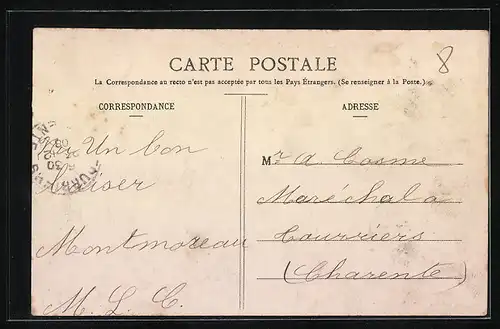 8
CARTE POSTALE
La Correspondance au recto n'est pas acceptée par tous les Pays Étrangers. (Se renseigner à la Poste.)
CORRESPONDANCE
Un bon
Baiser
Montmoreau
M. L. C.
ADRESSE
Mr A Cosme
Maréchal a
Courriers
(Charente)